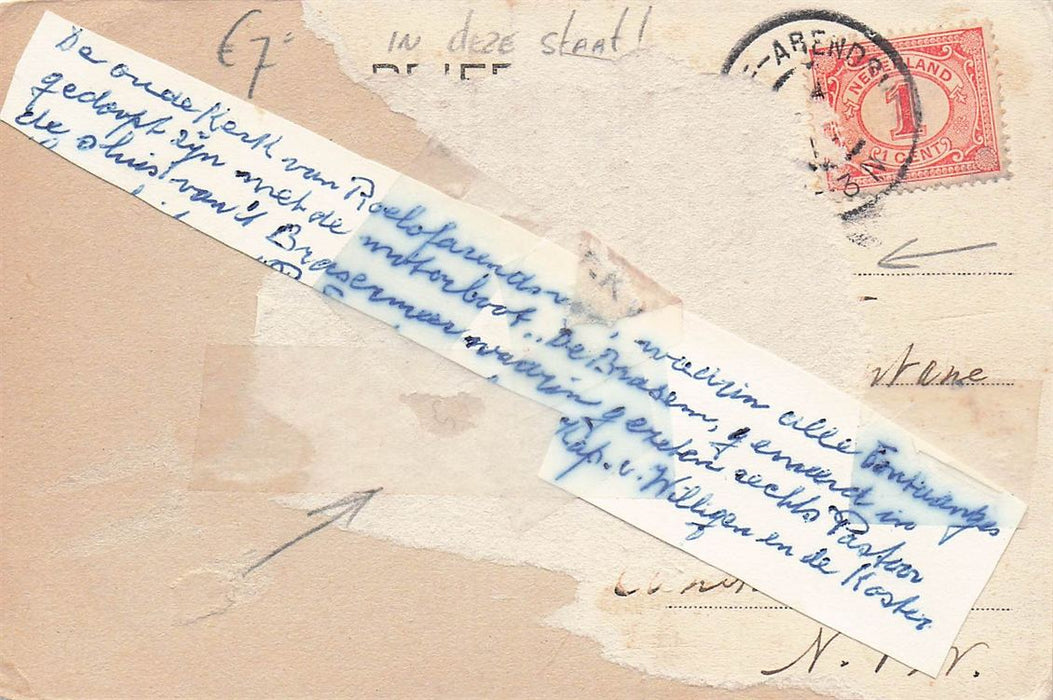 €7.-
IN deze staat!
-ABENDR
NEDERLAND
1
1 CENT
De oude Kerk van Roelofarendsv, waarin alle
gedoopt zijn met de motorboot "De Brasem, gemeerd in
de sluis van 't Brasemermeer waarin gezeten rechts Pastoor
Kap. v. Willigen en de Koster
N.